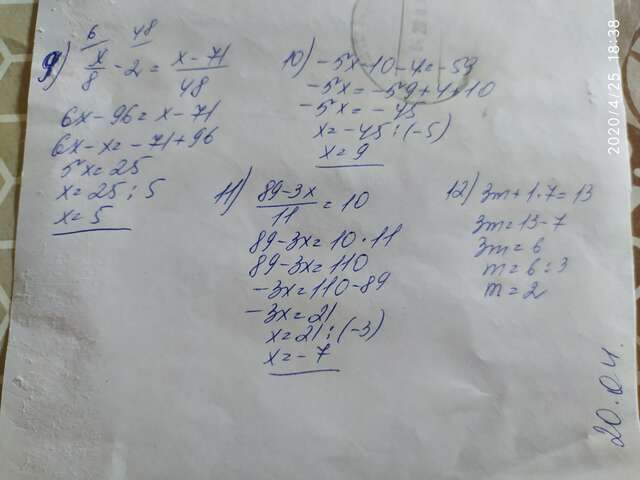 6 48
9) x/8 - 2 = x - 71/48
6x - 96 = x - 71
6x - x = -71 + 96
5x = 25
x = 25 : 5
x = 5
10) -5x - 10 - 4 = -59
-5x = -59 + 4 + 10
-5x = -45
x = -45 : (-5)
x = 9
11) 89 - 3x/11 = 10
89 - 3x = 10 · 11
89 - 3x = 110
-3x = 110 - 89
-3x = 21
x = 21 : (-3)
x = -7
12) 3m + 1 · 7 = 13
3m = 13 - 7
3m = 6
m = 6 : 3
m = 2
20.04.
2020/4/25 18:38